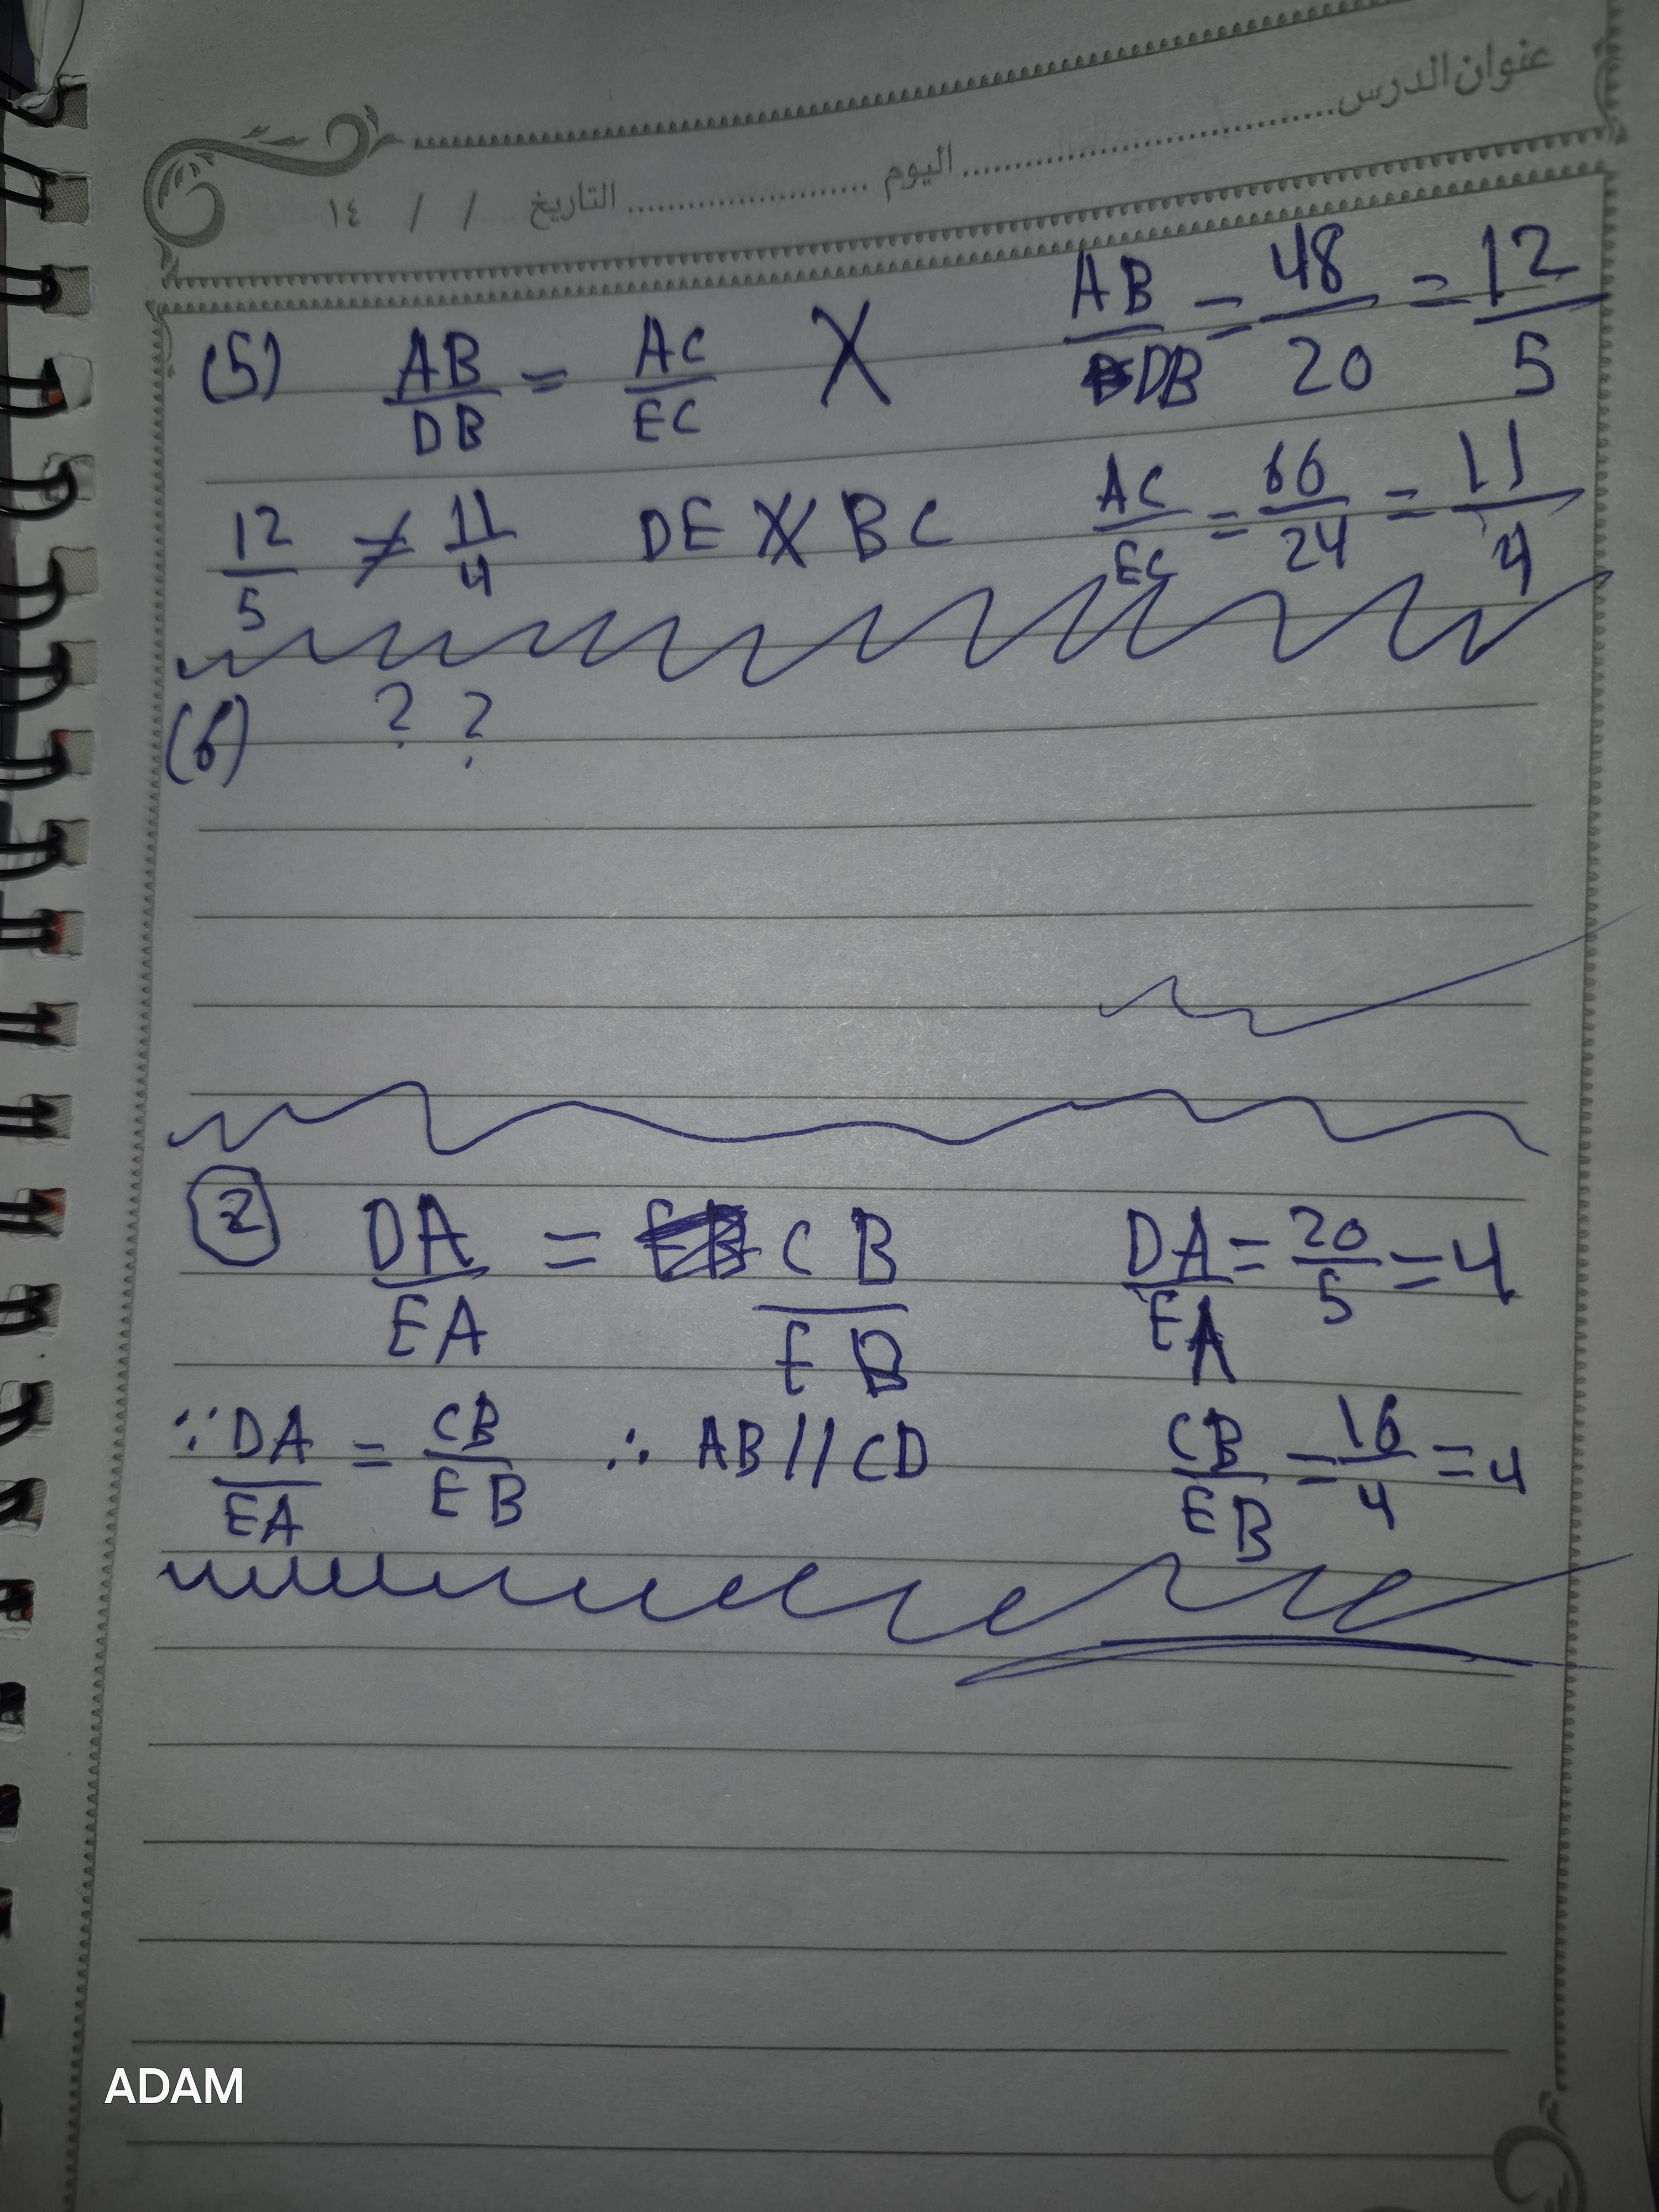 عنوان الدرس .......................... اليوم .................... التاريخ / / ١٤
(5) AB/DB = AC/EC X AB/DB = 48/20 = 12/5
12/5 ≠ 11/4 DE ∦ BC AC/EC = 66/24 = 11/4
(6) ? ?
② DA/EA = CB/EB DA/EA = 20/5 = 4
∵ DA/EA = CB/EB ∴ AB // CD CB/EB = 16/4 = 4
ADAM